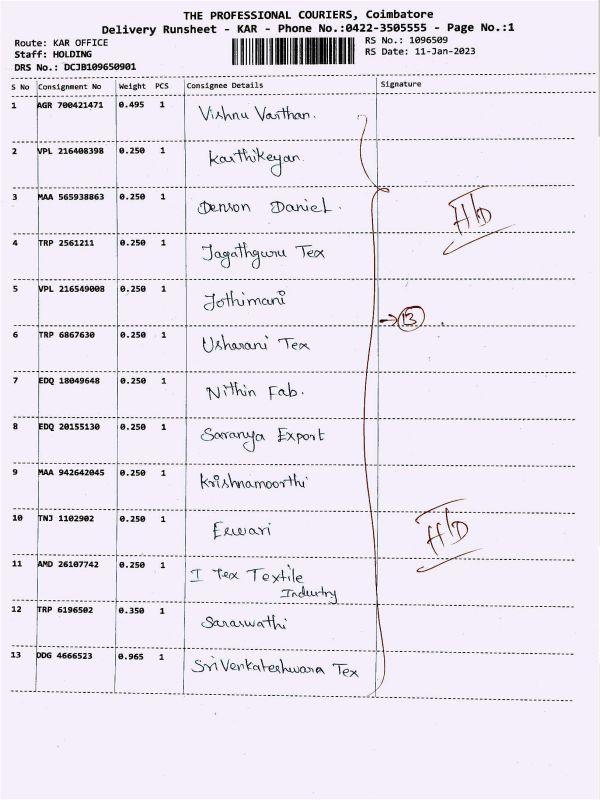 THE PROFESSIONAL COURIERS, Coimbatore
Delivery Runsheet - KAR - Phone No.:0422-3505555 - Page No.:1
Route: KAR OFFICE
Staff: HOLDING
DRS No.: DCJB109650901
RS No.: 1096509
RS Date: 11-Jan-2023
S No Consignment No Weight PCS Consignee Details Signature
1 AGR 700421471 0.495 1 Vishnu Varthan.
2 VPL 216408398 0.250 1 Karthikeyan.
3 MAA 565938863 0.250 1 Denson Daniel.
4 TRP 2561211 0.250 1 Jagathguru Tex
5 VPL 216549008 0.250 1 Jothimani
13
6 TRP 6867630 0.250 1 Usharani Tex
7 EDQ 18049648 0.250 1 Nithin Fab.
8 EDQ 20155130 0.250 1 Saranya Export
9 MAA 942642045 0.250 1 Krishnamoorthi
10 TNJ 1102902 0.250 1
11 AMD 26107742 0.250 1 I Tex Textile
Industry
12 TRP 6196502 0.350 1 Saraswathi
13 DDG 4666523 0.965 1 Sri Venkateshwara Tex
H/D
H/D